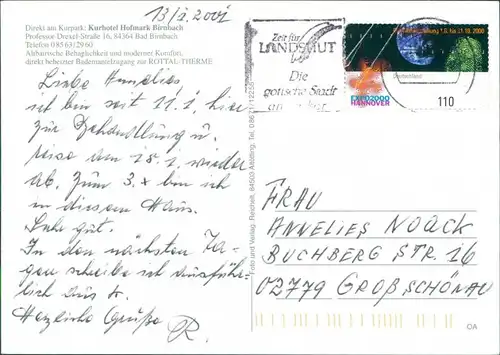 13/1. 2001
Direkt am Kurpark: Kurhotel Hofmark Birnbach
Professor Drexel-Straße 16, 84364 Bad Birnbach
Telefon 0 85 63/29 60
Altbairische Behaglichkeit und moderner Komfort,
direkt beheizter Bademantelzugang zur ROTTAL-THERME
Liebe Annelies
ich bin seit 11.1. hier
zur Behandlung u.
reise am 18.1. wieder
ab. Zum 3.x bin ich
in diesem Haus.
Sehr gut.
In den nächsten Ta-
gen schreibe ich ausführ-
lich
Herzliche Grüße
Foto und Verlag Reichelt, 84503 Altötting, Tel.
Zeit für
LANDSHUT
Die
gotische Stadt
1.6. bis 31.10.2000
Deutschland
EXPO2000
HANNOVER
110
FRAU
ANNELIES NOACK
BUCHBERG STR. 16
02779 GROßSCHÖNAU
OA